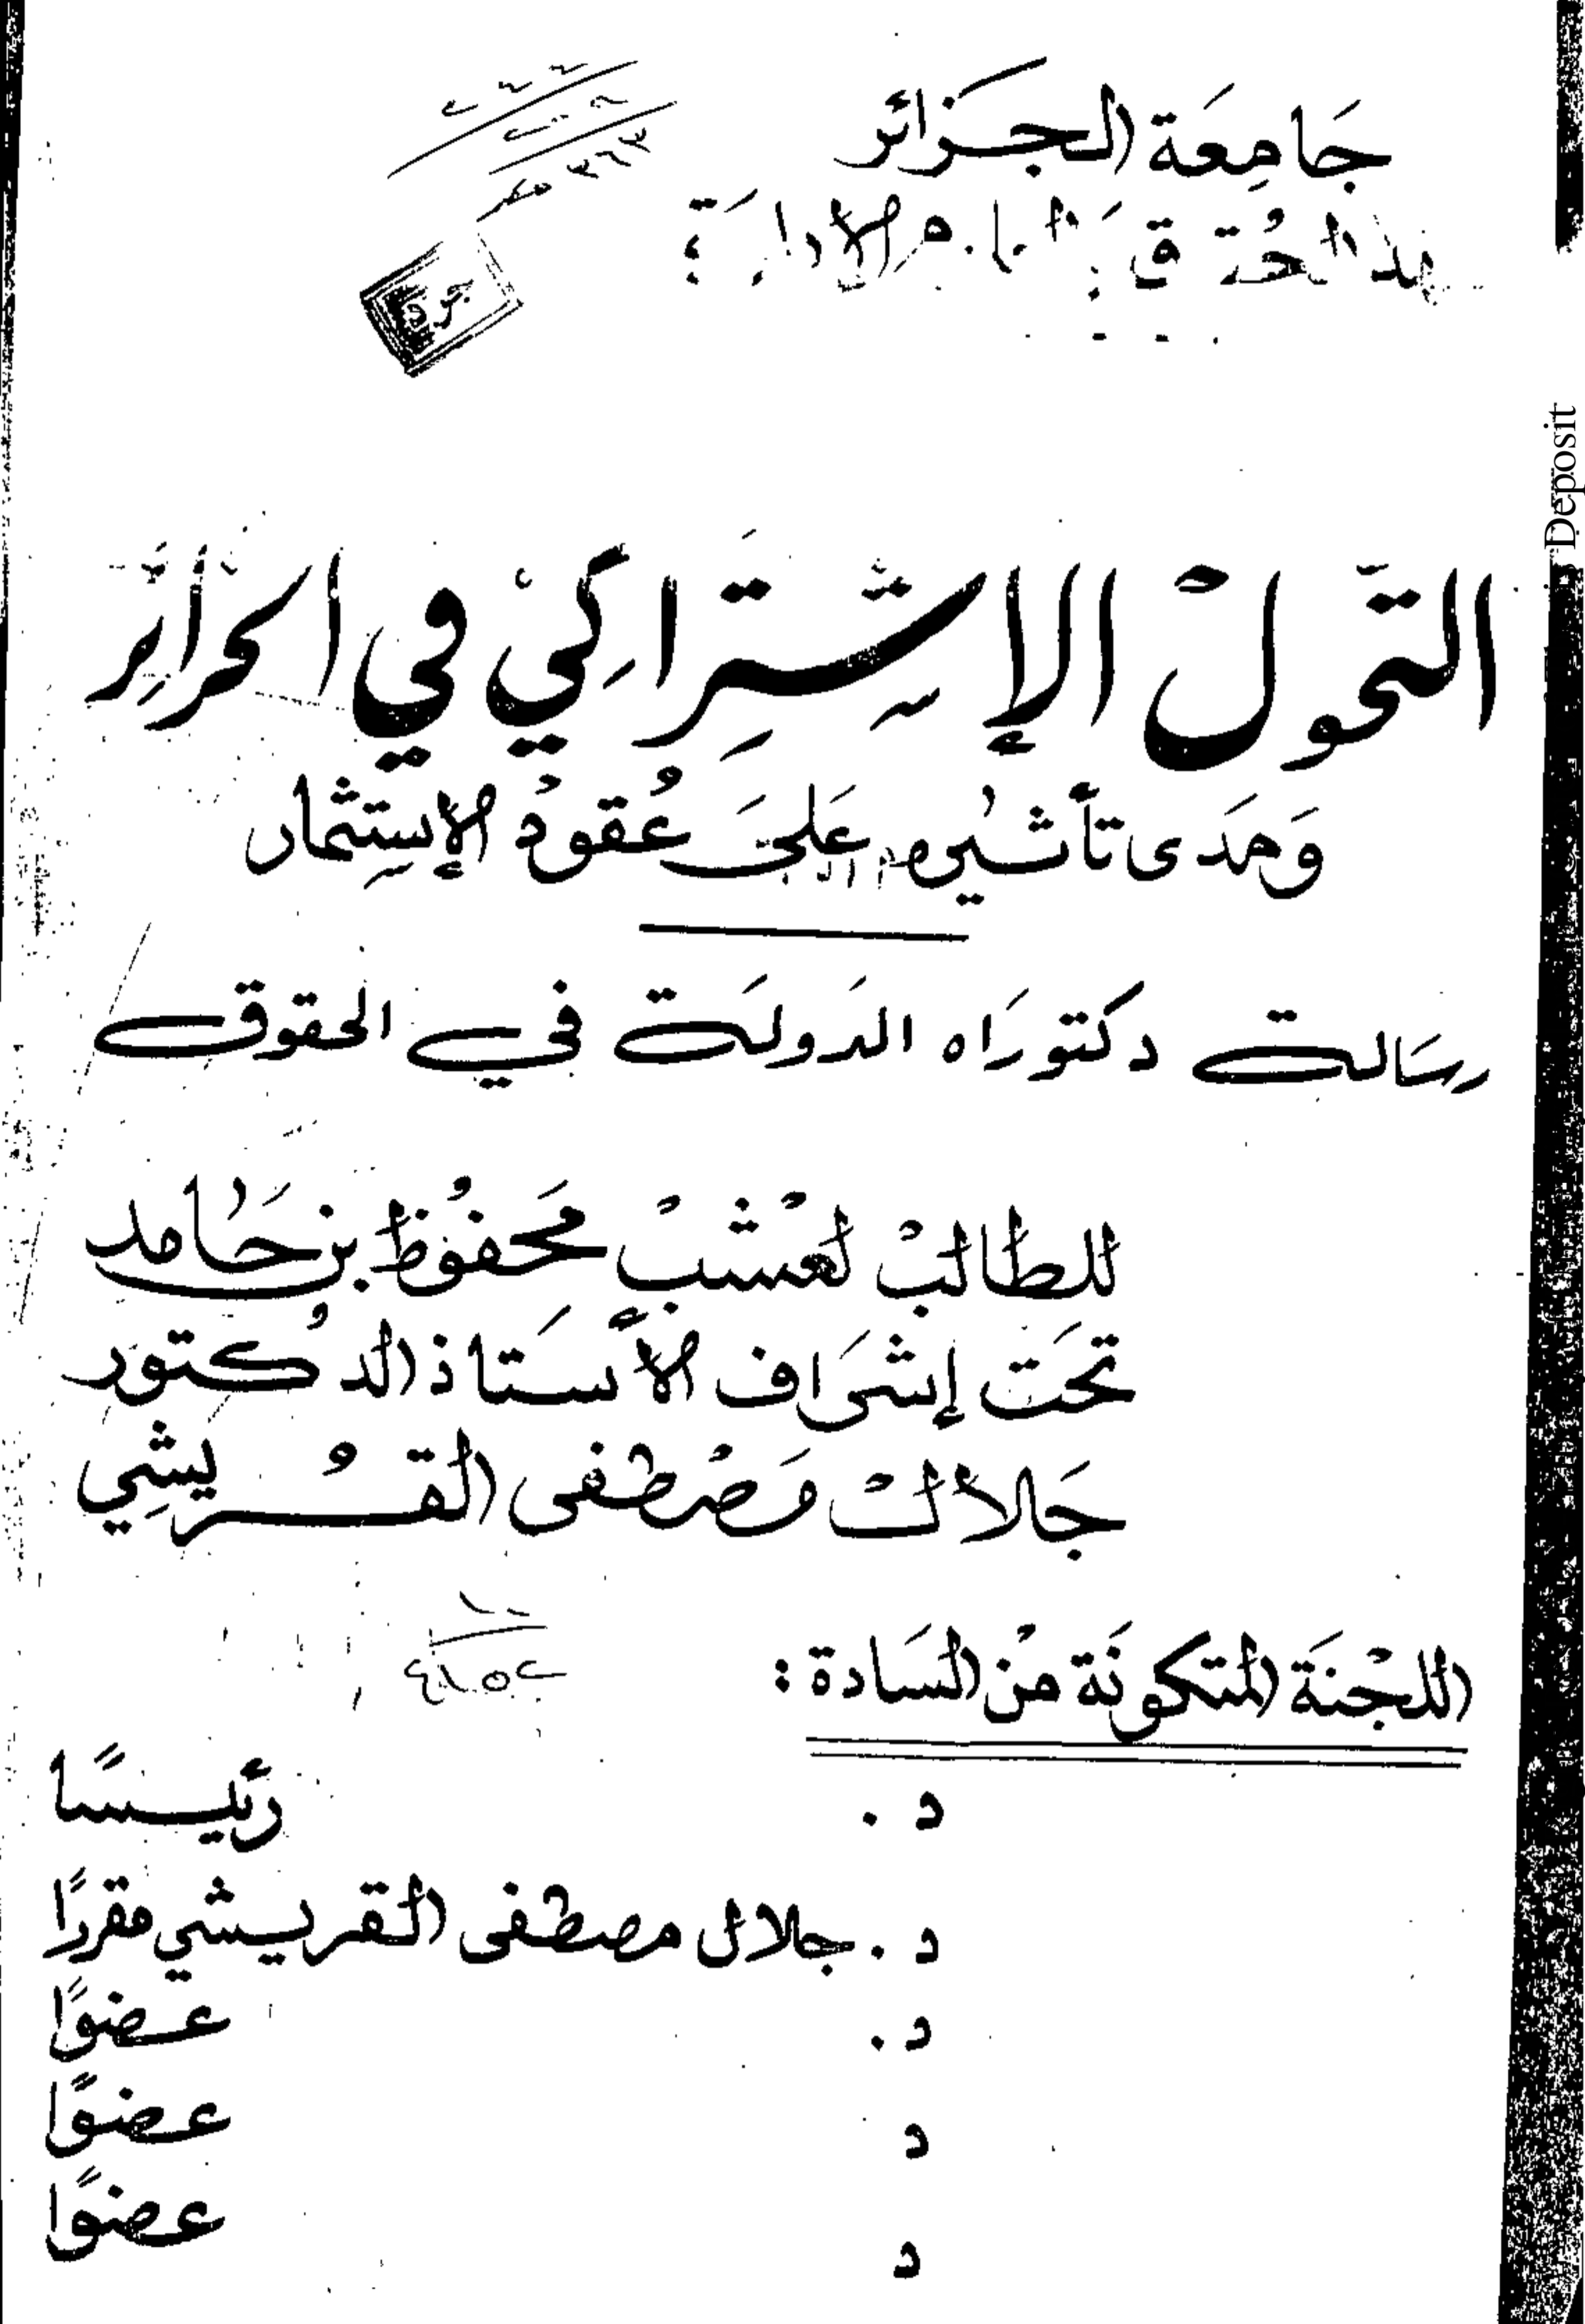 جَامِعَة الجَزائر
التحوّل الإشتِراكي في الجزائر
وَمَدى تأثيره عَلى عُقود الإستِثمار
رسَالة دكتورَاه الدَولَة في الحقوق
للطالبْ لعشبْ مَحفوُظ بن حَامد
تحَت إشرَاف الأسَتاذ الدكتوُر
جَلال مَصْطفى القُريشِي
اللجْنَة المتكونَة مْن السَادة :
د . رئيسًا
د . جلال مصطفى القريشي مقررًا
د . عضوًا
د عضوًا
د عضوًا
Deposit